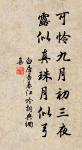 可怜九月初三夜
露似真珠月似弓
白居易暮江吟詩典網
集